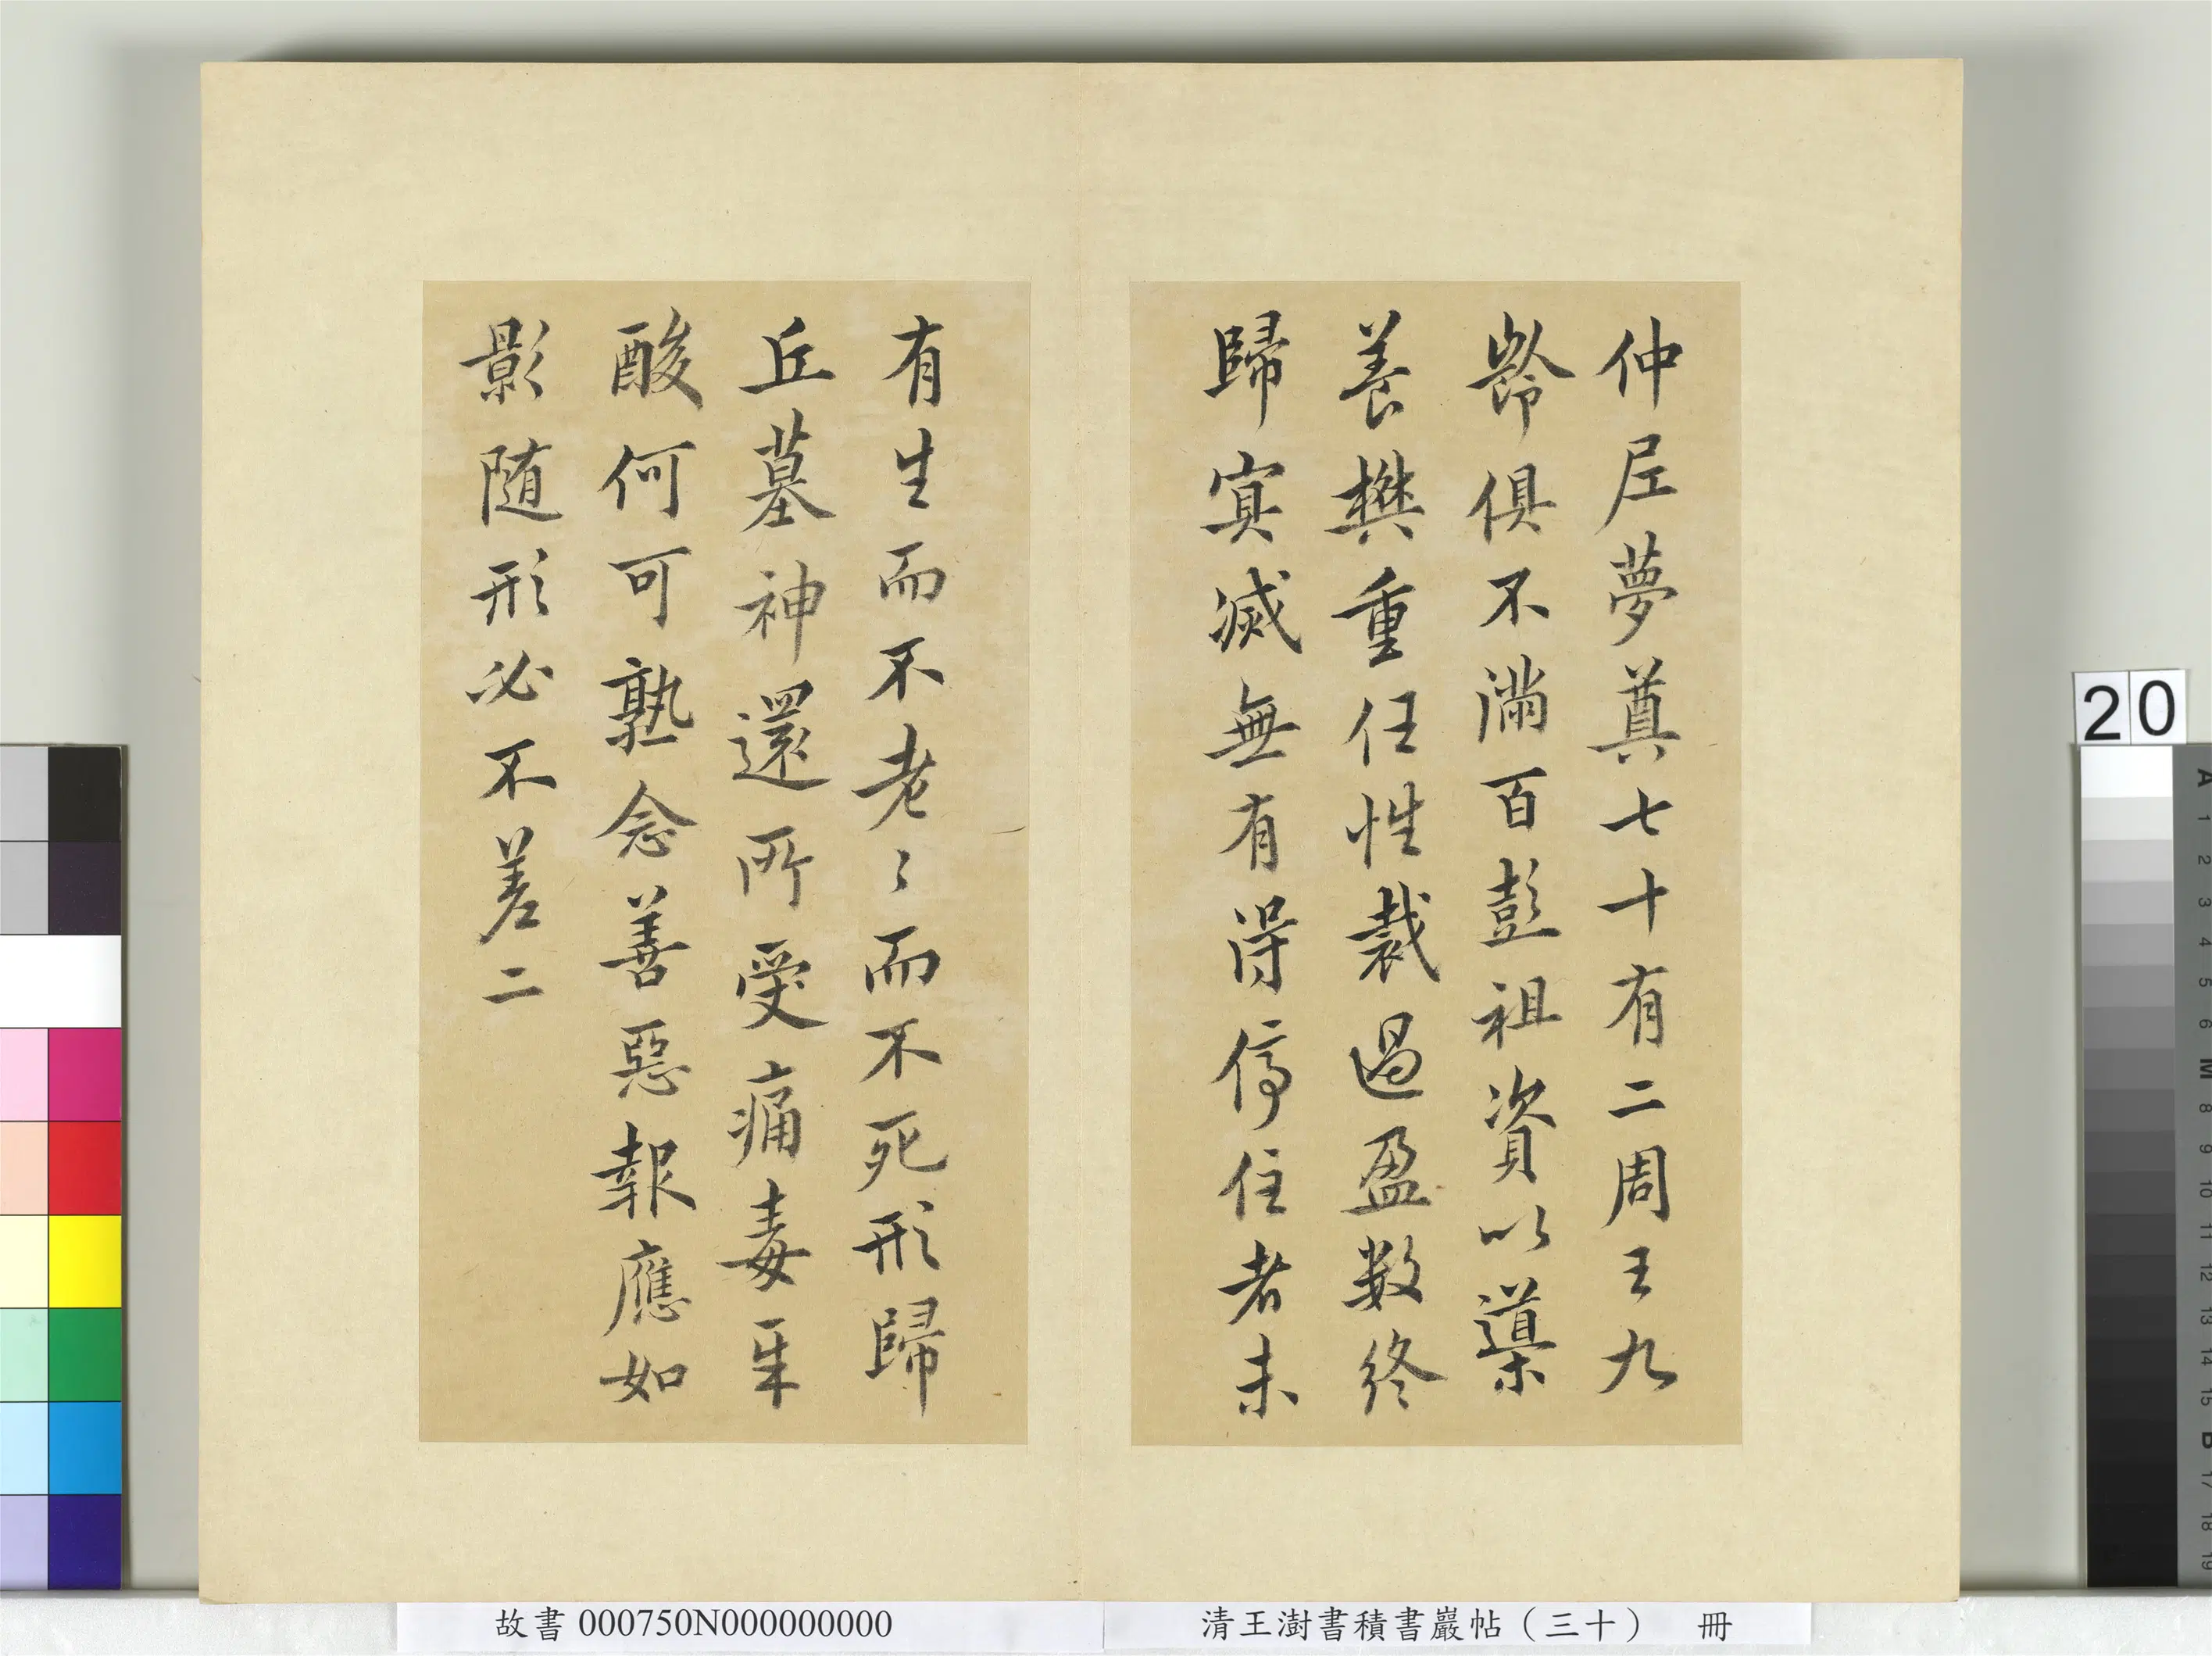 仲尼夢奠七十有二周王九
齡俱不滿百彭祖資以導
養樊重任性裁過盈數終
歸冥滅無有得停住者未
有生而不老〻而不死形歸
丘墓神還所受痛毒辛
酸何可熟念善惡報應如
影随形必不差二
故書000750N000000000
清王澍書積書巖帖(三十) 冊
20
A
1
2
3
4
5
6
M
8
9
10
11
12
13
14
15
B
17
18
19